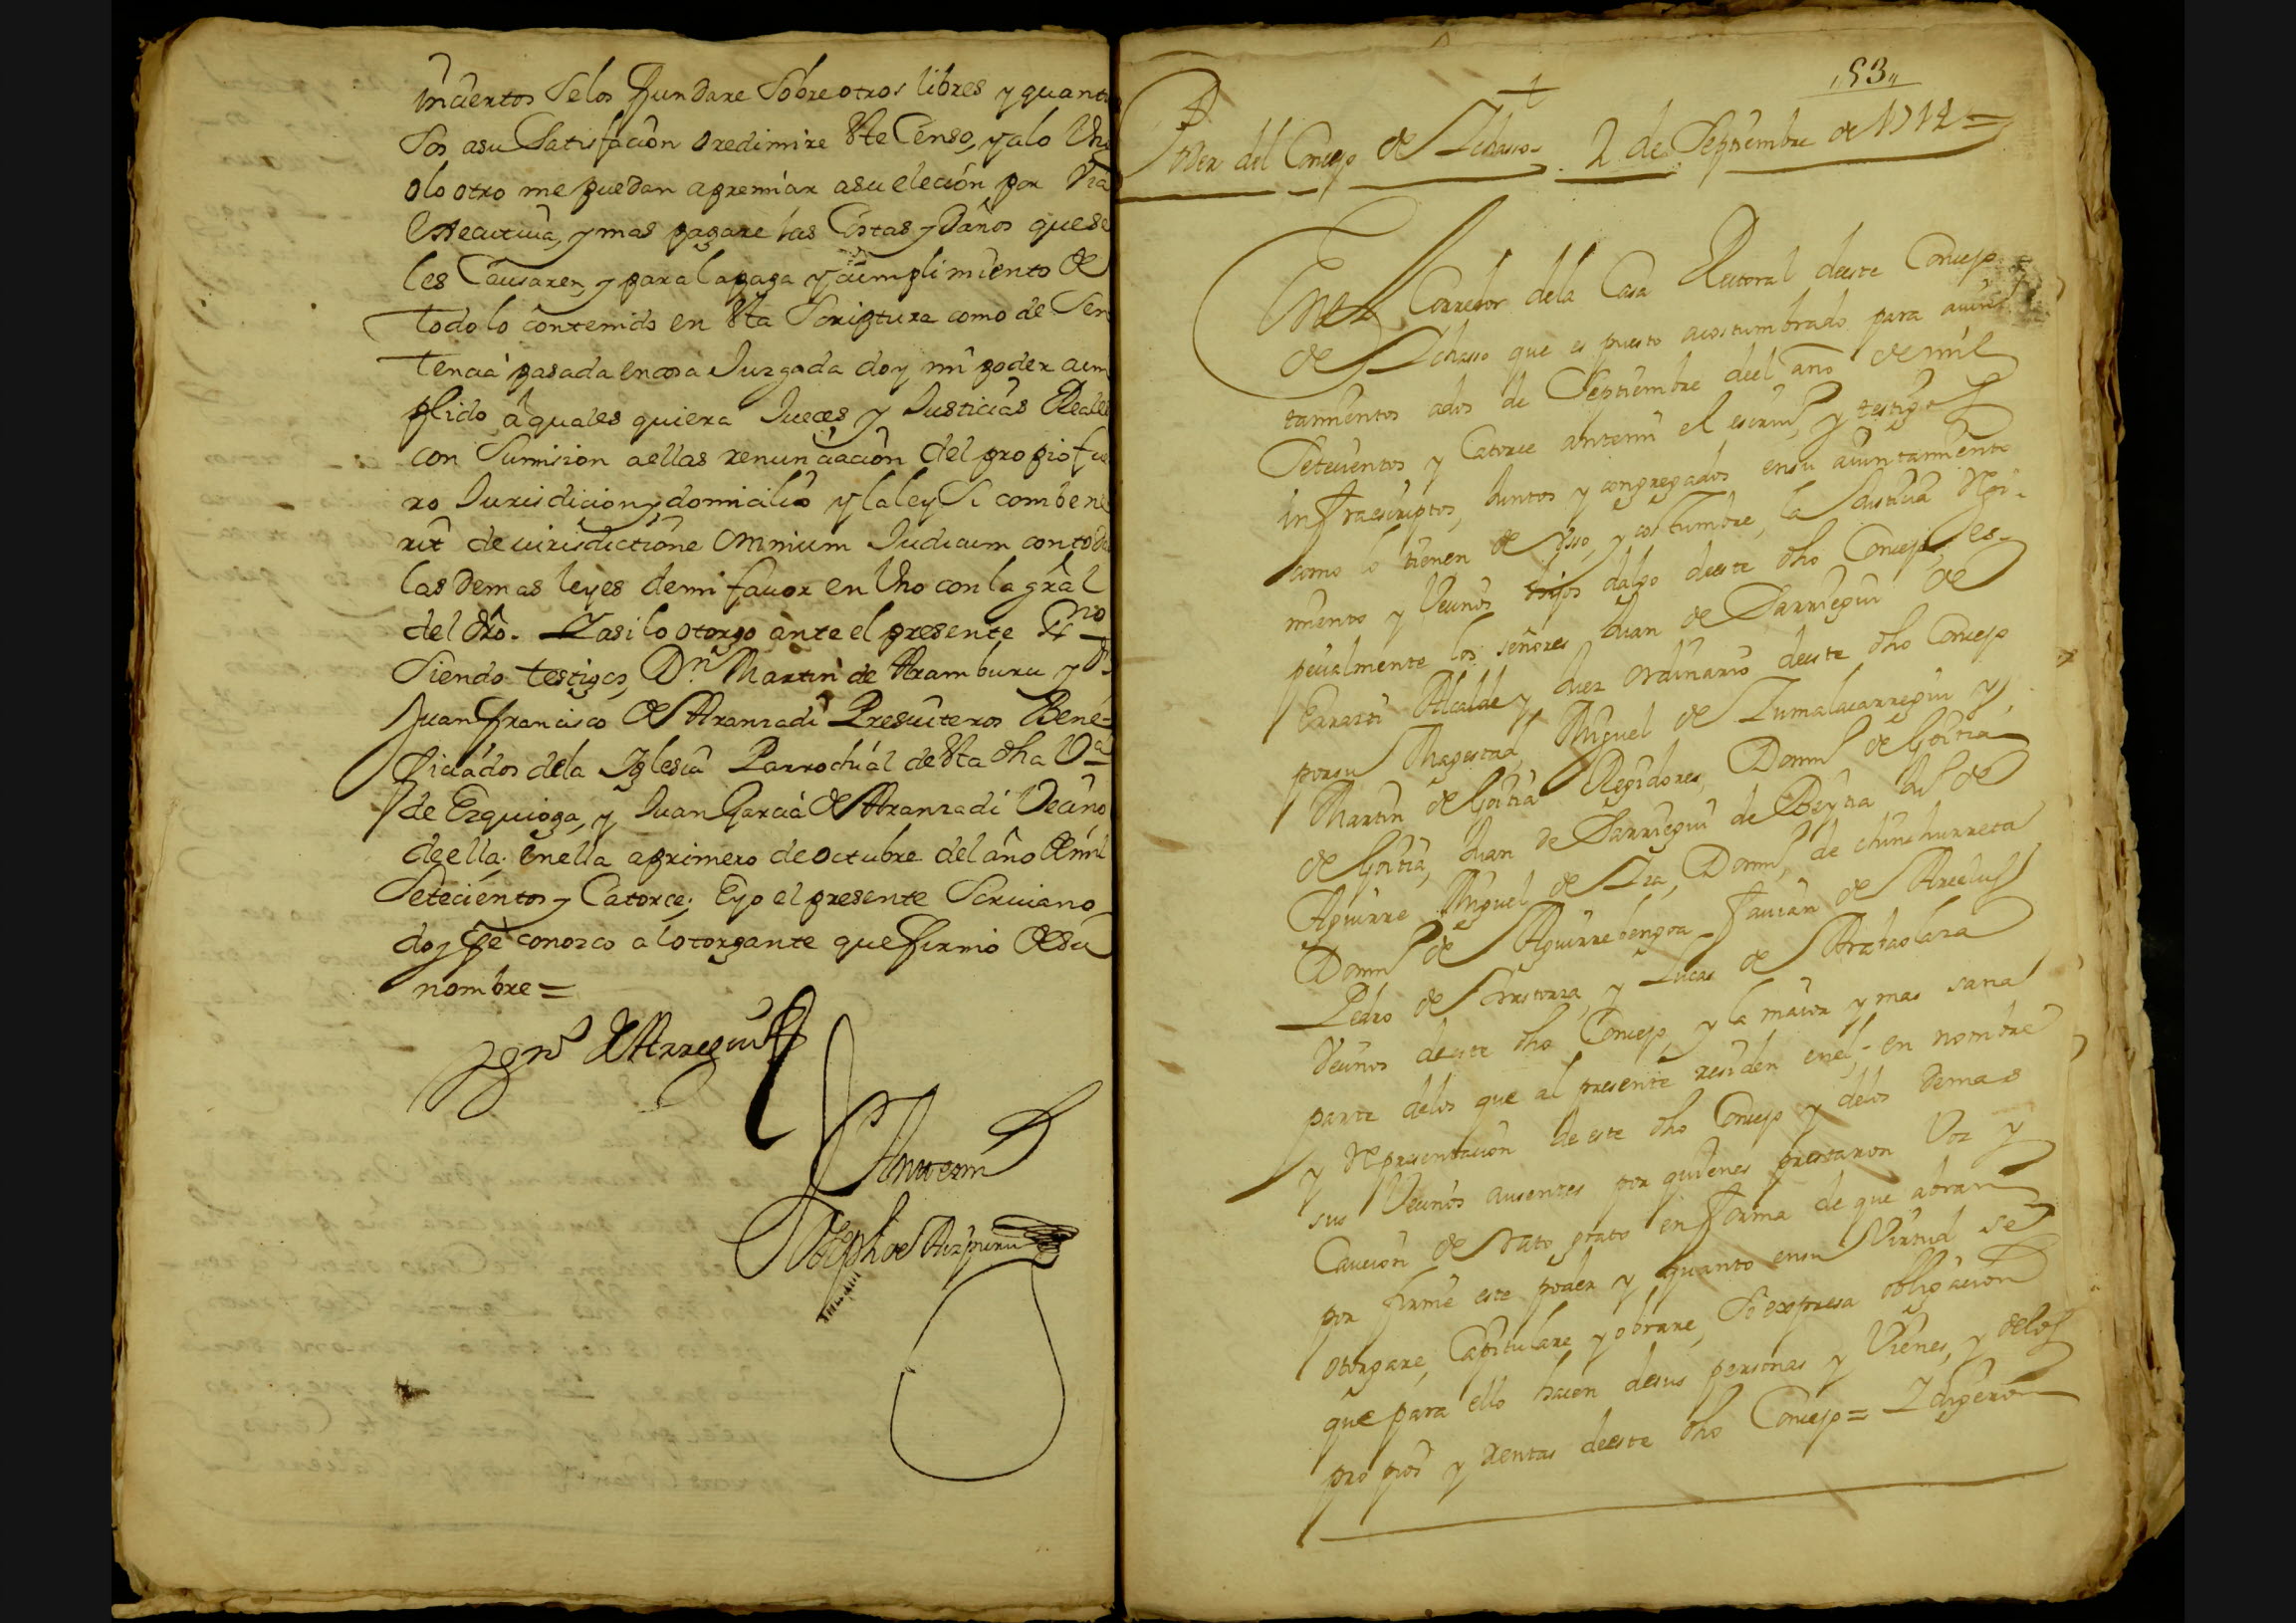 inciertos Selos fundare Sobre otros libres y quant
sos asu Satisfacion o redimire este Censo, yalo Vno
olo otro me puedan apremiar asu elecion por Via
executiva, y mas pagare las Costas y Daños quese
les Causaren, y para la paga y cumplimiento de
todo lo contenido en esta Scriptura como de Sen
tencia pasada encosa Juzgada doy mi poder cum
plido aquales quiera Jueces y Justicias Reales
con Sumision aellas renunciacion del propio fue
ro Jurisdicion y domicilio y la ley Si combene
rit de iurisdictione omnium Judicum con todas
las demas leyes demi favor en Vno con la gral
del dro. Y asi lo otorgo ante el presente ess.no
Siendo testigos, Dn. Martin de Aramburu y Dn.
Juan francisco de Aranzadi Presviteros Bene-
ficiados dela Iglesia Parrochial de esta dha Va
de Ezquioga, y Juan Garcia de Aranzadi Vecino
de ella. en ella a primero de octubre del año de mil
Setecientos y Catorce; Eyo el presente Scriuano
doy fe conozco alotorgante que firmo desu
nombre =
Ygn.o de Arregui
Antemi
Joseph de Aizpuru
,,53,,
Poder del Concejo de Ichasso. 2 de Septiembre de 1714 =
En el Corredor dela Casa Rectoral deeste Concejo
de Ichasso que es puesto acostumbrado para aiun
tamientos ados de Septiembre del año de mil
Setecientos y Catorce antemi el escriu.o y testigos
infraescriptos, Juntos y congregados ensu aiuntamiento
como lo tienen de Vsso, y costumbre, la Justicia Regi-
miento y Vecinos hijos dalgo deeste dho Concejo, es-
pecialmente los señores Juan de Sarriegui de
Errarti Alcalde y Juez ordinario deeste dho Concejo
porsu Magestad, Miguel de Zumalacarregui y
Martin de Goitia Regidores, Dom.o de Goitia
de Goitia, Juan de Sarriegui de Beytia de
Aguirre Miguel de Iza, Dom.o de chinchurreta
Dom.o de Aguirrebengoa fauian de Arcelus
Pedro de y Lucas de Arataolaza
Vecinos deeste dho Concejo, y la maior y mas sana
parte delos que al presente residen enel, en nombre
y Representacion de este dho Concejo y delos demas
sus Vecinos ausentes por quienes prestaron Voz y
Caucion de rato grato en forma de que abran
por firme este poder y quanto ensu Virtud se
otorgare, Capitulare y obrare, So expresa obligacion
que para ello hacen desus personas y Vienes, y delos
propios y rentas deeste dho Concejo = Y dixeron